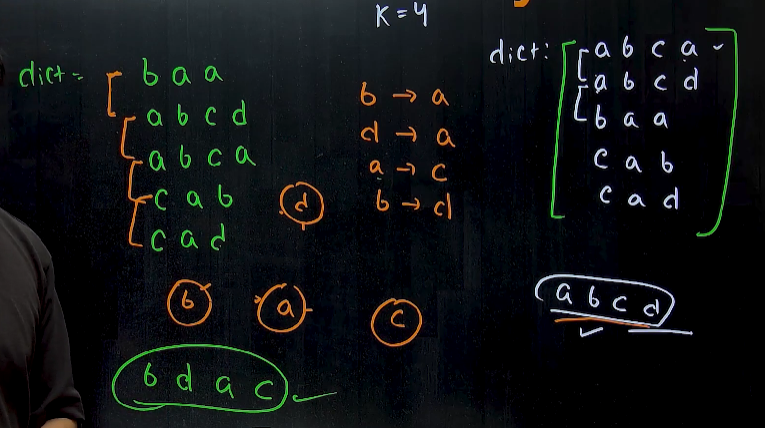 K = 4
dict =
b a a
a b c d
a b c a
c a b
c a d
b → a
d → a
a → c
b → d
d
b
a
c
b d a c
dict:
a b c a
a b c d
b a a
c a b
c a d
a b c d